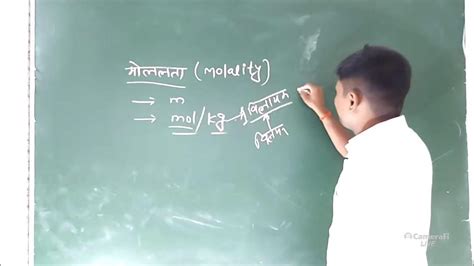 मोललता (Molality)
→ m
→ mol/kg →
CameraFi
LIVE